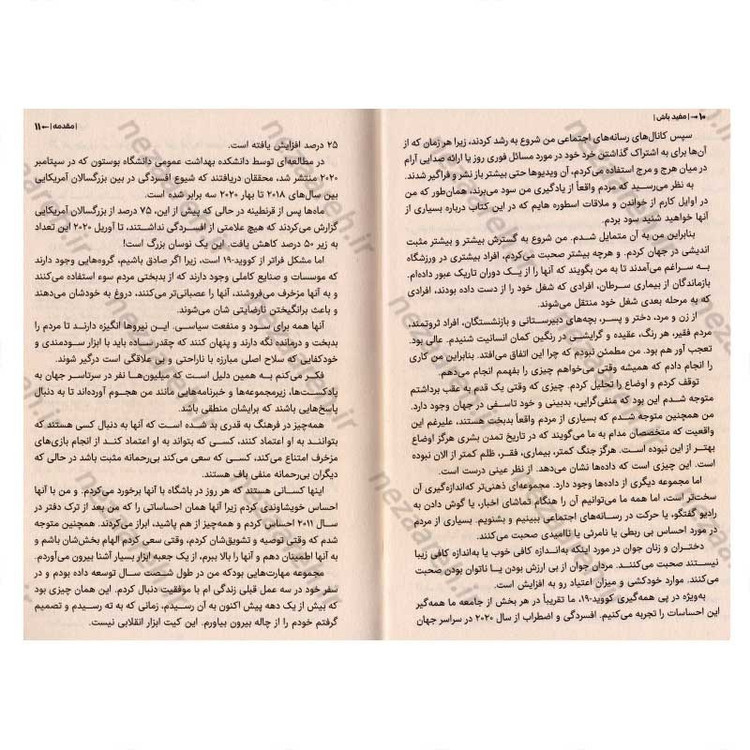 ۱۰ → | مفید باش |
سپس کانال‌های رسانه‌های اجتماعی من شروع به رشد کردند، زیرا هر زمان که از
آن‌ها برای به اشتراک گذاشتن خرد خود در مورد مسائل فوری روز یا ارائه صدایی آرام
در میان هرج و مرج استفاده می‌کردم، آن ویدیوها حتی بیشتر باز نشر و فراگیر شدند.
به نظر می‌رسید که مردم واقعاً از یادگیری من سود می‌برند، همان‌طور که من
در اوایل کارم از خواندن و ملاقات اسطوره هایم که در این کتاب درباره بسیاری از
آنها خواهید شنید سود بردم.
بنابراین من به آن متمایل شدم. من شروع به گسترش بیشتر و بیشتر مثبت
اندیشی در جهان کردم. و هرچه بیشتر صحبت می‌کردم، افراد بیشتری در ورزشگاه
به سراغم می‌آمدند تا به من بگویند که آنها را از یک دوران تاریک عبور داده‌ام.
بازماندگان از بیماری سرطان، افرادی که شغل خود را از دست داده بودند، افرادی
که به مرحله بعدی شغل خود منتقل می‌شوند.
از زن و مرد، دختر و پسر، بچه‌های دبیرستانی و بازنشستگان، افراد ثروتمند،
مردم فقیر، هر رنگ، عقیده و گرایشی در رنگین کمان انسانیت شنیدم. عالی بود.
تعجب آور هم بود. من مطمئن نبودم که چرا این اتفاق می‌افتد. بنابراین من کاری
را انجام دادم که همیشه وقتی می‌خواهم چیزی را بفهمم انجام می‌دهم.
توقف کردم و اوضاع را تحلیل کردم. چیزی که وقتی یک قدم به عقب برداشتم
متوجه شدم این بود که منفی‌گرایی، بدبینی و خود تاسفی در جهان وجود دارد.
من همچنین متوجه شدم که بسیاری از مردم واقعاً بدبخت هستند، علیرغم این
واقعیت که متخصصان مدام به ما می‌گویند که در تاریخ تمدن بشری هرگز اوضاع
بهتر از این نبوده است. هرگز جنگ کمتر، بیماری، فقر، ظلم کمتر از الان نبوده
است. این چیزی است که داده‌ها نشان می‌دهد. از نظر عینی درست است.
اما مجموعه دیگری از داده‌ها وجود دارد. مجموعه‌ای ذهنی‌تر که‌اندازه‌گیری آن
سخت‌تر است، اما همه ما می‌توانیم آن را هنگام تماشای اخبار، یا گوش دادن به
رادیو گفتگو، یا حرکت در رسانه‌های اجتماعی ببینیم و بشنویم. بسیاری از مردم
در مورد احساس بی ربطی یا نامرئی یا ناامیدی صحبت می‌کنند.
دختران و زنان جوان در مورد اینکه به‌اندازه کافی خوب یا به‌اندازه کافی زیبا
نیستند صحبت می‌کنند. مردان جوان از بی ارزش بودن یا ناتوان بودن صحبت
می‌کنند. موارد خودکشی و میزان اعتیاد رو به افزایش است.
به‌ویژه در پی همه‌گیری کووید-۱۹، ما تقریباً در هر بخش از جامعه ما همه‌گیر
این احساسات را تجربه می‌کنیم. افسردگی و اضطراب از سال ۲۰۲۰ در سراسر جهان
| مقدمه | ← ۱۱
۲۵ درصد افزایش یافته است.
در مطالعه‌ای توسط دانشکده بهداشت عمومی دانشگاه بوستون که در سپتامبر
۲۰۲۰ منتشر شد، محققان دریافتند که شیوع افسردگی در بین بزرگسالان آمریکایی
بین سال‌های ۲۰۱۸ تا بهار ۲۰۲۰ سه برابر شده است.
ماه‌ها پس از قرنطینه در حالی که پیش از این، ۷۵ درصد از بزرگسالان آمریکایی
گزارش می‌کردند که هیچ علامتی از افسردگی نداشتند، تا آوریل ۲۰۲۰ این تعداد
به زیر ۵۰ درصد کاهش یافت. این یک نوسان بزرگ است!
اما مشکل فراتر از کووید-۱۹ است، زیرا اگر صادق باشیم، گروه‌هایی وجود دارند
که موسسات و صنایع کاملی وجود دارند که از بدبختی مردم سوء استفاده می‌کنند
و به آنها مزخرف می‌فروشند، آنها را عصبانی‌تر می‌کنند، دروغ به خودشان می‌دهند
و باعث برانگیختن نارضایتی شان می‌شوند.
آنها همه برای سود و منفعت سیاسی. این نیروها انگیزه دارند تا مردم را
بدبخت و درمانده نگه دارند و پنهان کنند که چقدر ساده باید با ابزار سودمندی و
خودکفایی که سلاح اصلی مبارزه با ناراحتی و بی علاقگی است درگیر شوند.
فکر می‌کنم به همین دلیل است که میلیون‌ها نفر در سرتاسر جهان به
پادکست‌ها، زیرمجموعه‌ها و خبرنامه‌هایی مانند من هجوم آورده‌اند تا به دنبال
پاسخ‌هایی باشند که برایشان منطقی باشد.
همه‌چیز در فرهنگ به قدری بد شده است که آنها به دنبال کسی هستند که
بتوانند به او اعتماد کنند، کسی که بتواند به او اعتماد کند از انجام بازی‌های
مزخرف امتناع می‌کند، کسی که سعی می‌کند بی‌رحمانه مثبت باشد در حالی که
دیگران بی‌رحمانه منفی باف هستند.
اینها کسانی هستند که هر روز در باشگاه با آنها برخورد می‌کردم. و من با آنها
احساس خویشاوندی کردم زیرا آنها همان احساساتی را که من بعد از ترک دفتر در
سال ۲۰۱۱ احساس کردم و همه‌چیز از هم پاشید، ابراز می‌کردند. همچنین متوجه
شدم که وقتی توصیه و تشویق‌شان کردم، وقتی سعی کردم الهام بخش‌شان باشم و
به آنها اطمینان دهم و آنها را بالا ببرم، از یک جعبه ابزار بسیار آشنا بیرون می‌آوردم.
مجموعه مهارت‌هایی بودکه من در طول شصت سال توسعه داده بودم و در
سفر خود در سه عمل قبلی زندگی ام با موفقیت دنبال کردم. این همان چیزی بود
که بیش از یک دهه پیش اکنون به آن رسیدم، زمانی که به ته رسیدم و تصمیم
گرفتم خودم را از چاله بیرون بیاورم. این کیت ابزار انقلابی نیست.
nezaareh.ir